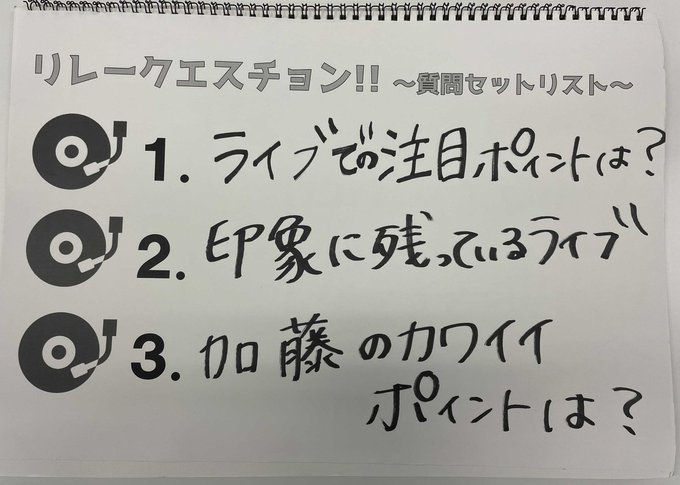 リレークエスチョン!! ～質問セットリスト～
1. ライブでの注目ポイントは?
2. 印象に残っているライブ
3. 加藤のカワイイ
ポイントは?